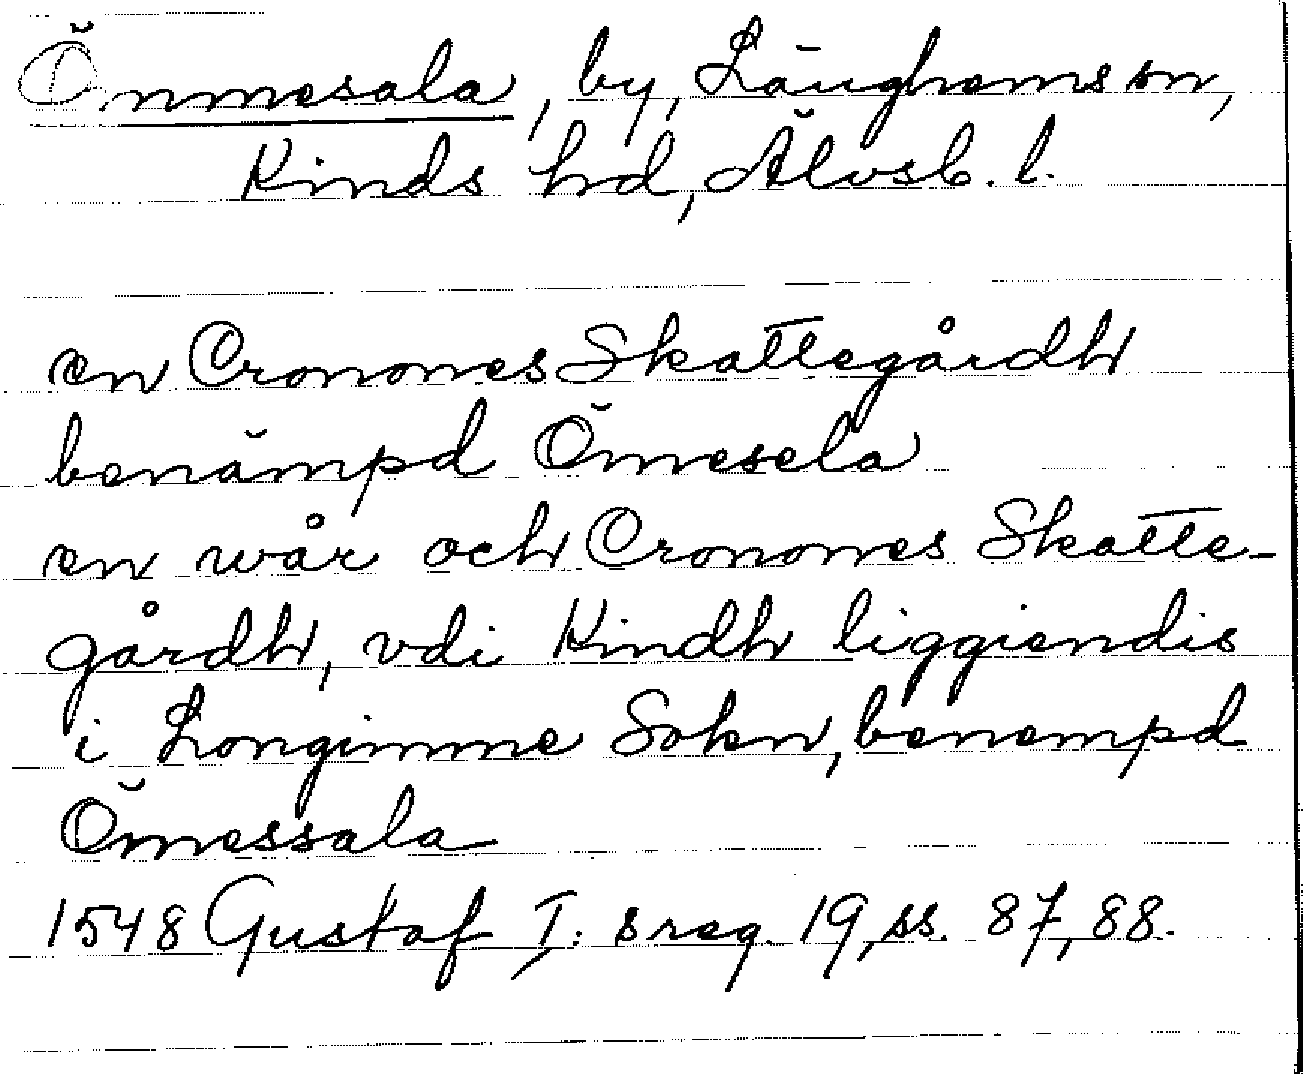 Önmesala, by, Länghems sn,
Kinds hd, Älvsb. l.
en Cronones Skattegårdh
benämpd Ömesela
en wår och Cronones Skatte-
gårdh, vdi Kindh liggiendis
i Longimme Sokn, benempd
Ömessala
1548 Gustaf I: s reg. 19, ss. 87, 88.